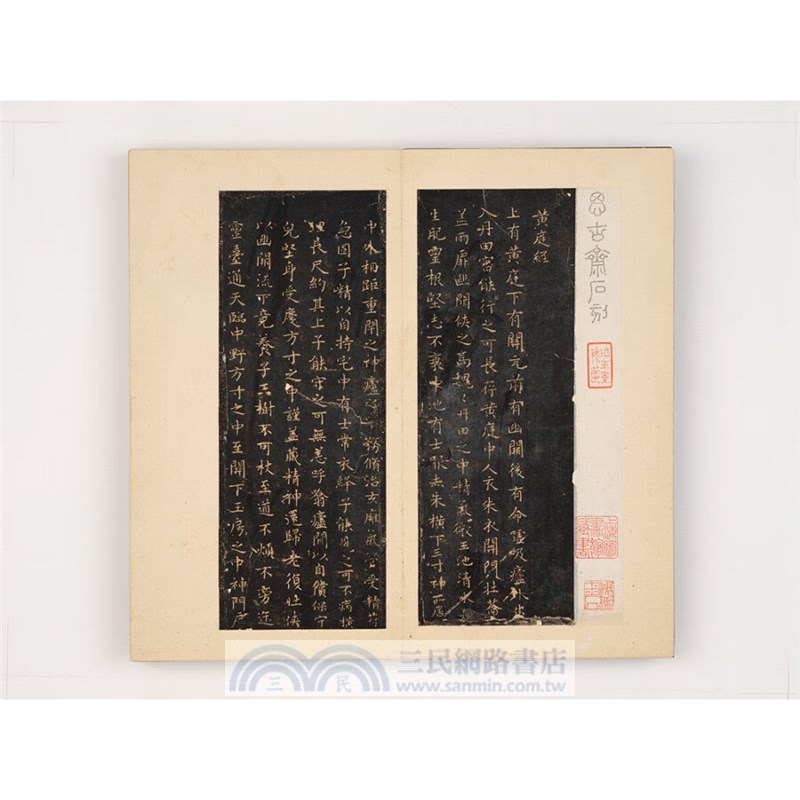 思古齋石刻
黃庭經
上有黃庭下有關元前有幽闕後有命噓吸廬外出
入丹田審能行之可長存黃庭中人衣朱衣關門壯蘥
蓋兩扉幽闕俠之高魏丹田之中精氣微玉池清水上
生肥靈根堅志不衰中池有士服赤朱橫下三寸神所居
中外相距重閉之神廬之中務脩治玄廱氣管受精符
急固子精以自持宅中有士常衣絳子能見之可不病橫
理長尺約其上子能守之可無恙呼噏廬閒以自償保守
兒堅身受慶方寸之中謹蓋藏精神還歸老復壯俠
以幽闕流下竟養子玉樹不可杖至道不煩不旁迕
靈臺通天臨中野方寸之中至關下玉房之中神門戶
三民網路書店
www.sanmin.com.tw
三 民